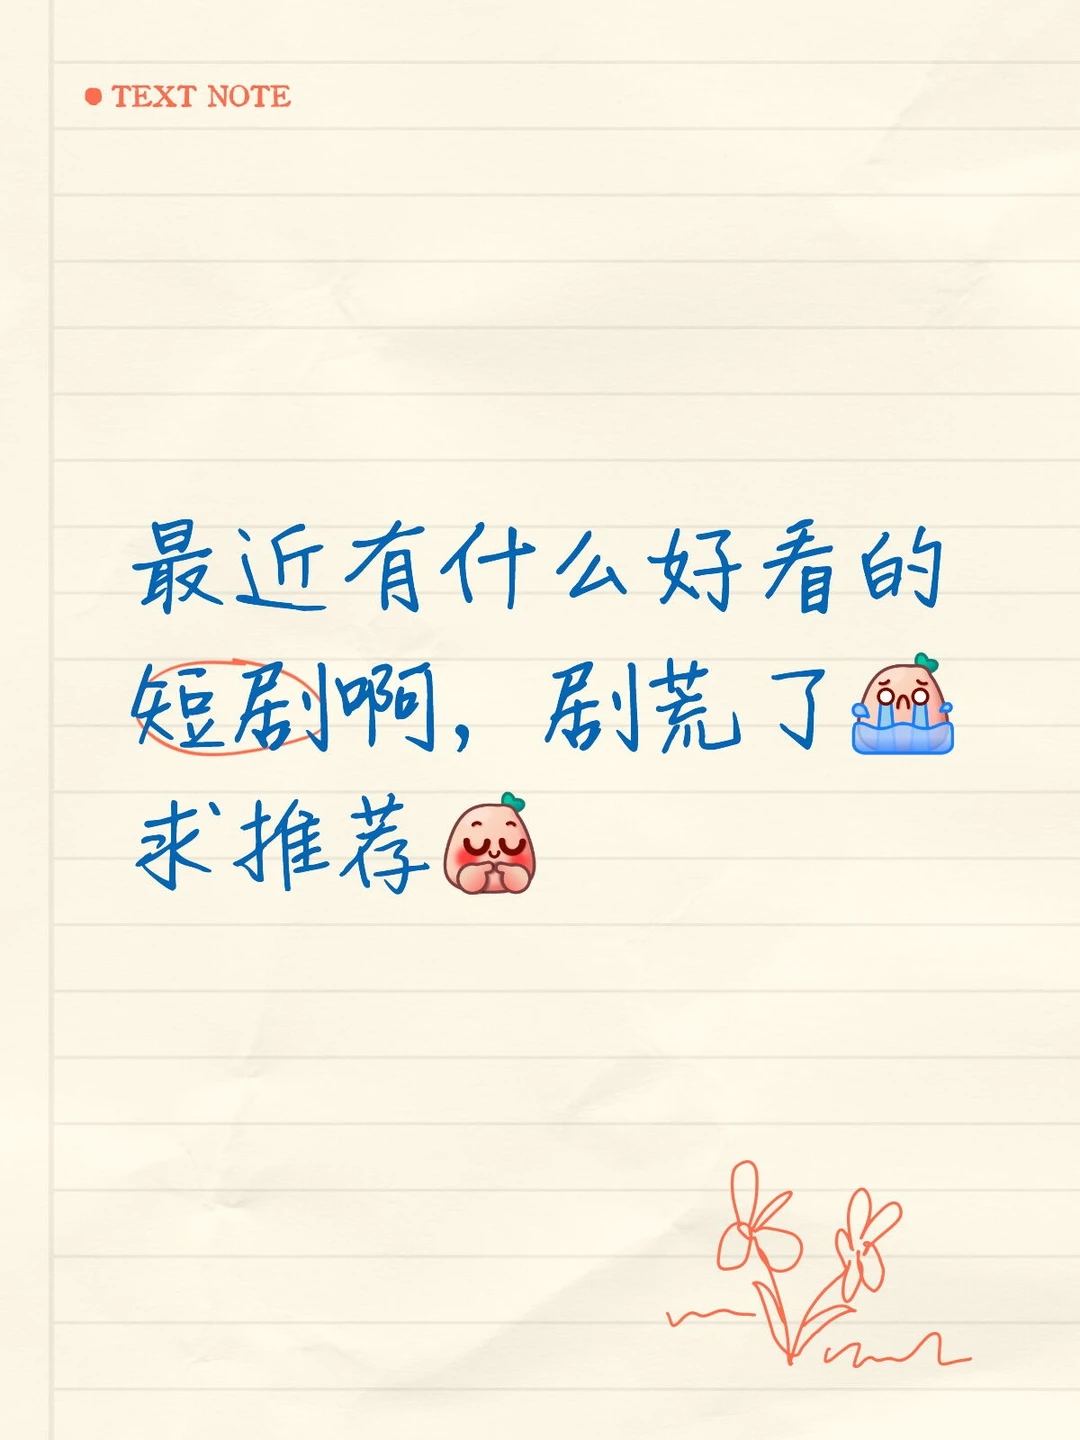 TEXT NOTE
最近有什么好看的
短剧啊，剧荒了
求推荐